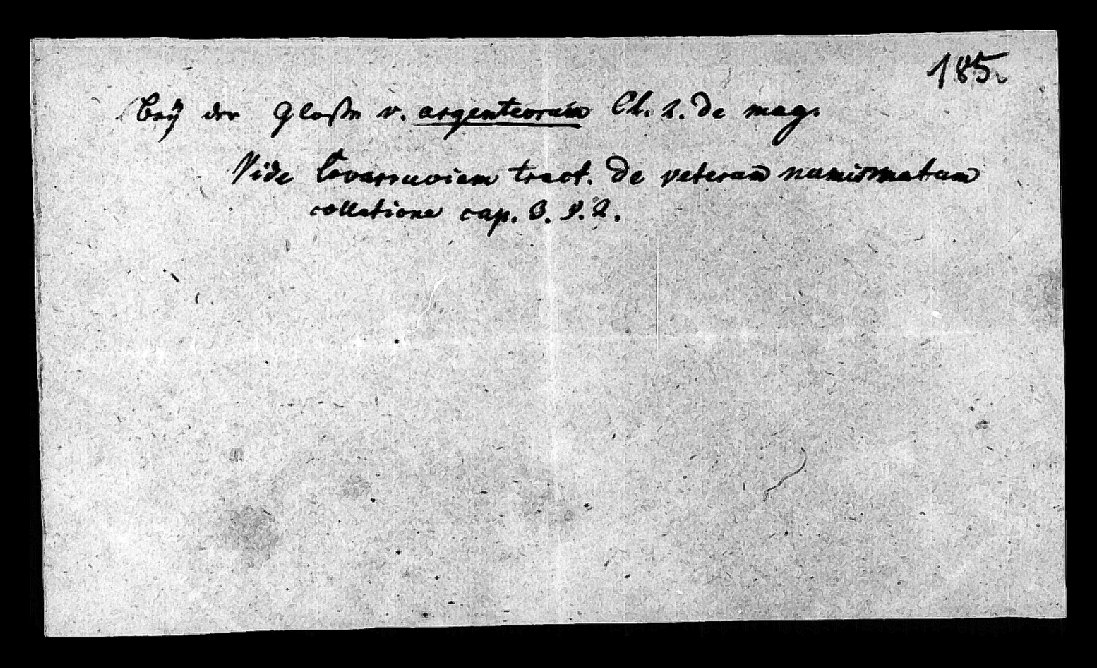 185.
Bey der Glosse v. argenteorum Cl. 2. de mag.
Vide Covarruviam tract. de veterum numismatum
collatione cap. 3. §. 2.